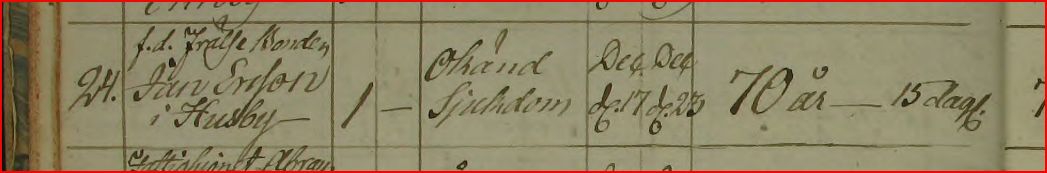 f.d. Frälse Bonden
24. Jan Ersson
i Husby
1 —
Okänd
Sjukdom
Dec Dec
d. 17 d. 23
70 år — 15 dag.